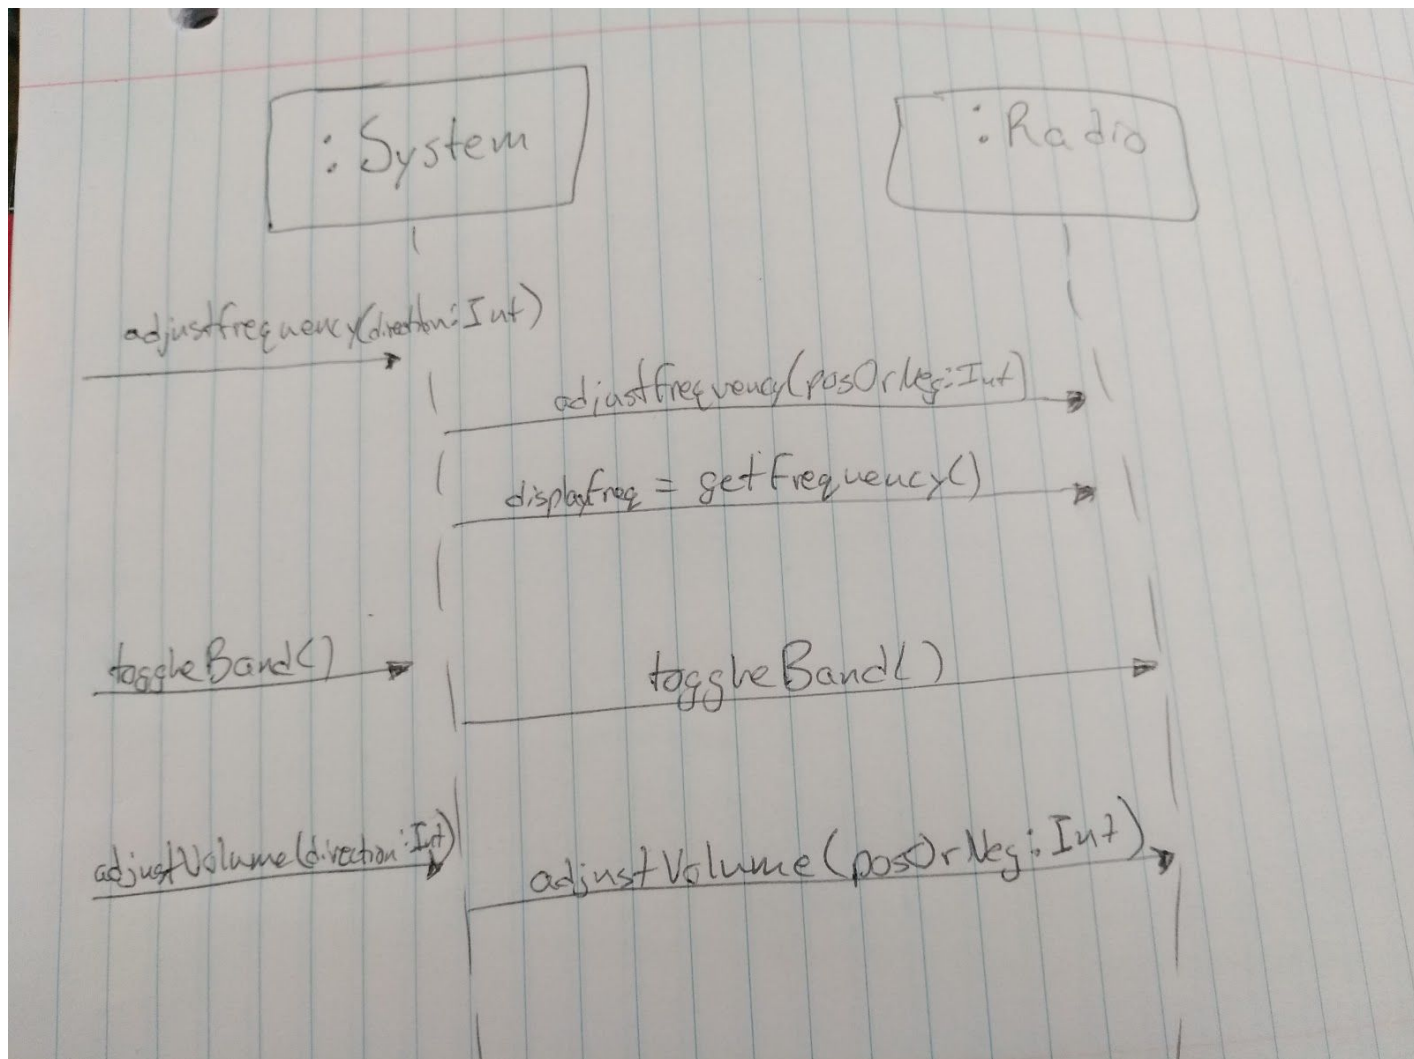 :System
:Radio
adjustfrequency(direction:Int)
adjustfrequency(posOrNeg:Int)
displayfreq = getfrequency()
toggleBand()
toggleBand()
adjustVolume(direction:Int)
adjustVolume(posOrNeg:Int)